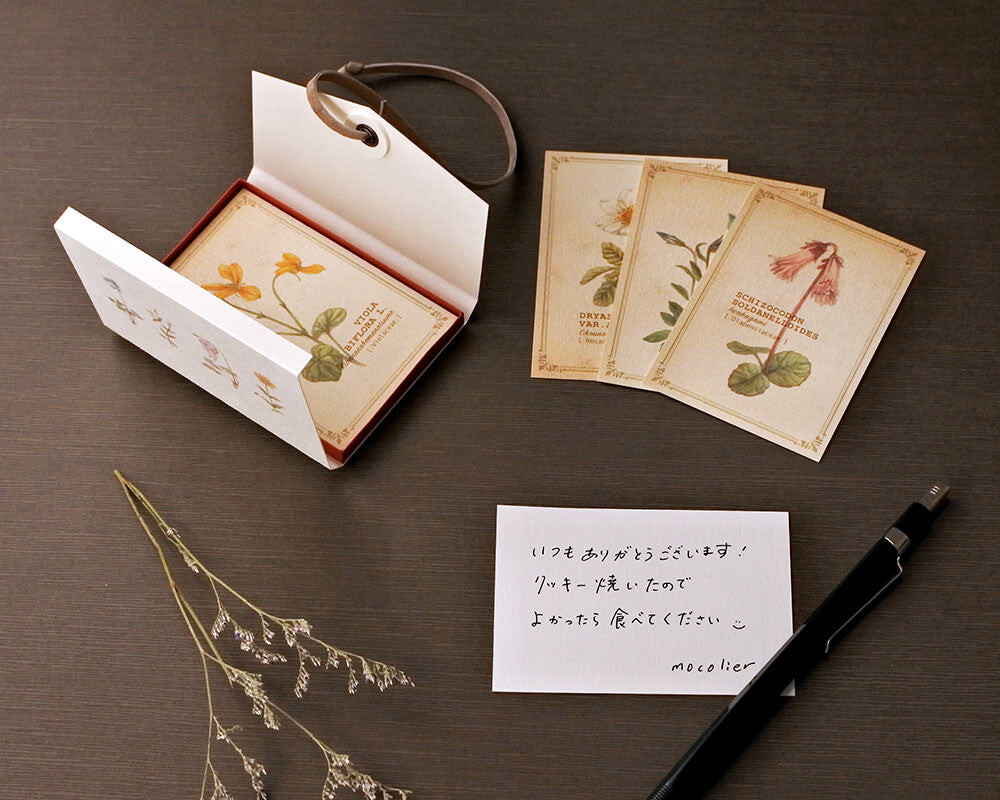 VIOLA
BIFLORA L.
[:Violaceae:]
DRYAS
VAR.
SCHIZOCODON
SOLDANELLOIDES
Iwakagami
[:Diapensiaceae:]
いつもありがとうございます!
クッキー焼いたので
よかったら食べてください
mocolier